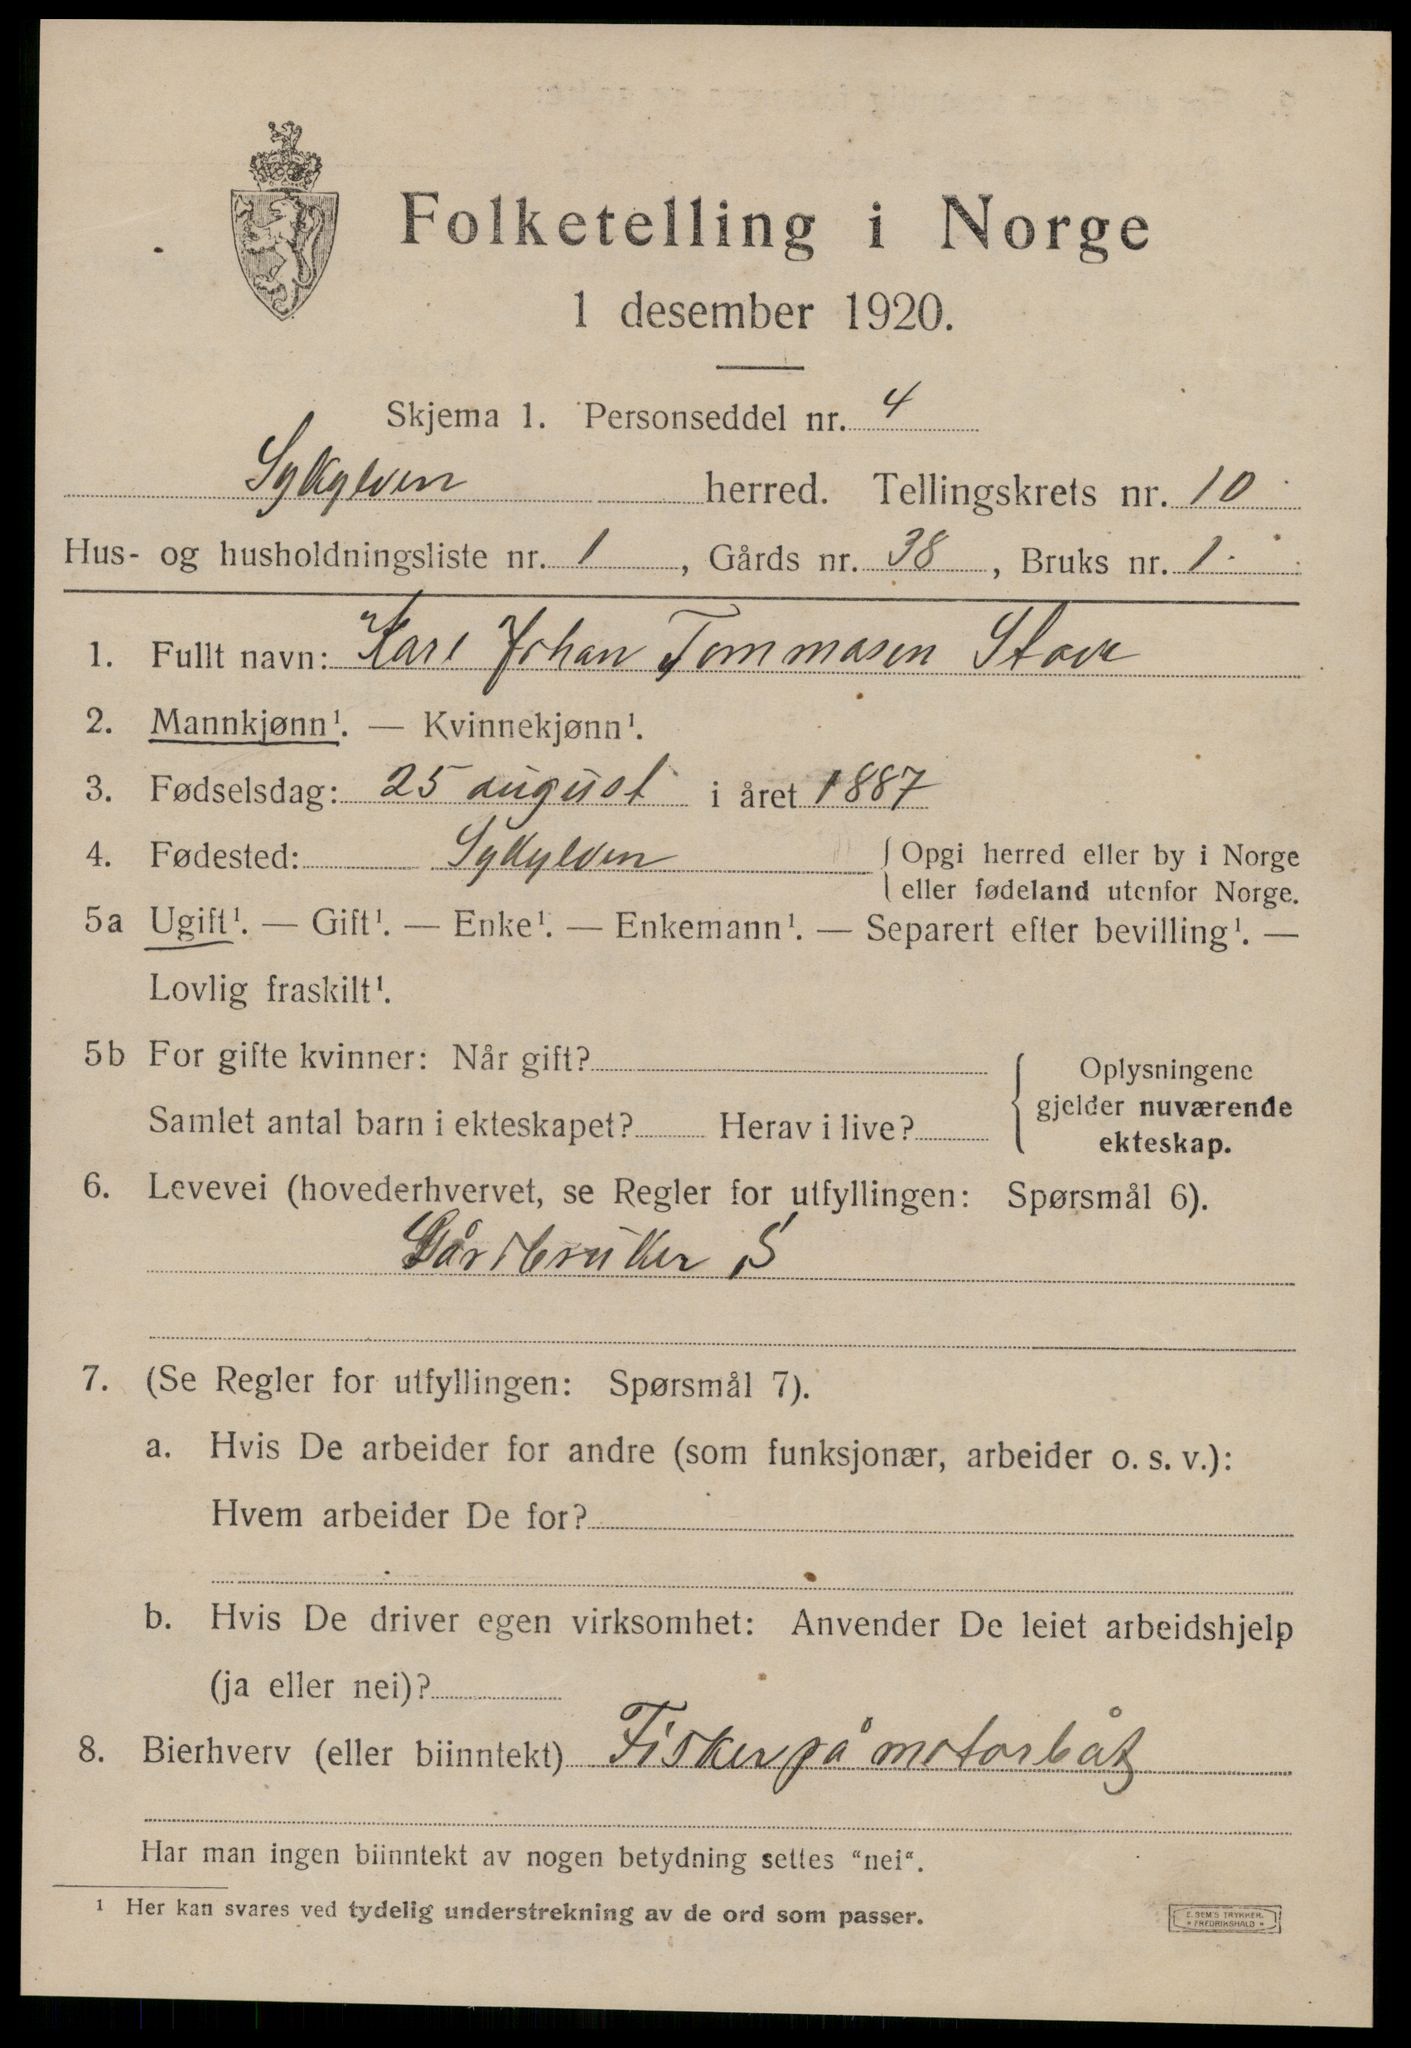 Folketelling i Norge
1 desember 1920.
Skjema 1. Personseddel nr. 4
Sykylven herred. Tellingskrets nr. 10
Hus- og husholdningsliste nr. 1, Gårds nr. 38, Bruks nr. 1.
1. Fullt navn: Karl Johan Tommasen Stave
2. Mannkjønn¹. — Kvinnekjønn¹.
3. Fødselsdag: 25 august i året 1887
4. Fødested: Sykylven { Opgi herred eller by i Norge
eller fødeland utenfor Norge.
5a Ugift¹. — Gift¹. — Enke¹. — Enkemann¹. — Separert efter bevilling¹. —
Lovlig fraskilt¹.
5b For gifte kvinner: Når gift?
Samlet antal barn i ekteskapet? Herav i live?
{ Oplysningene
gjelder nuværende
ekteskap.
6. Levevei (hovederhvervet, se Regler for utfyllingen: Spørsmål 6).
Gårdbruker S
7. (Se Regler for utfyllingen: Spørsmål 7).
a. Hvis De arbeider for andre (som funksjonær, arbeider o. s. v.):
Hvem arbeider De for?
b. Hvis De driver egen virksomhet: Anvender De leiet arbeidshjelp
(ja eller nei)?
8. Bierhverv (eller biinntekt) Fisker på motorbåt
Har man ingen biinntekt av nogen betydning settes "nei".
¹ Her kan svares ved tydelig understrekning av de ord som passer.
E. SEM'S TRYKKER.
* FREDRIKSHALD *